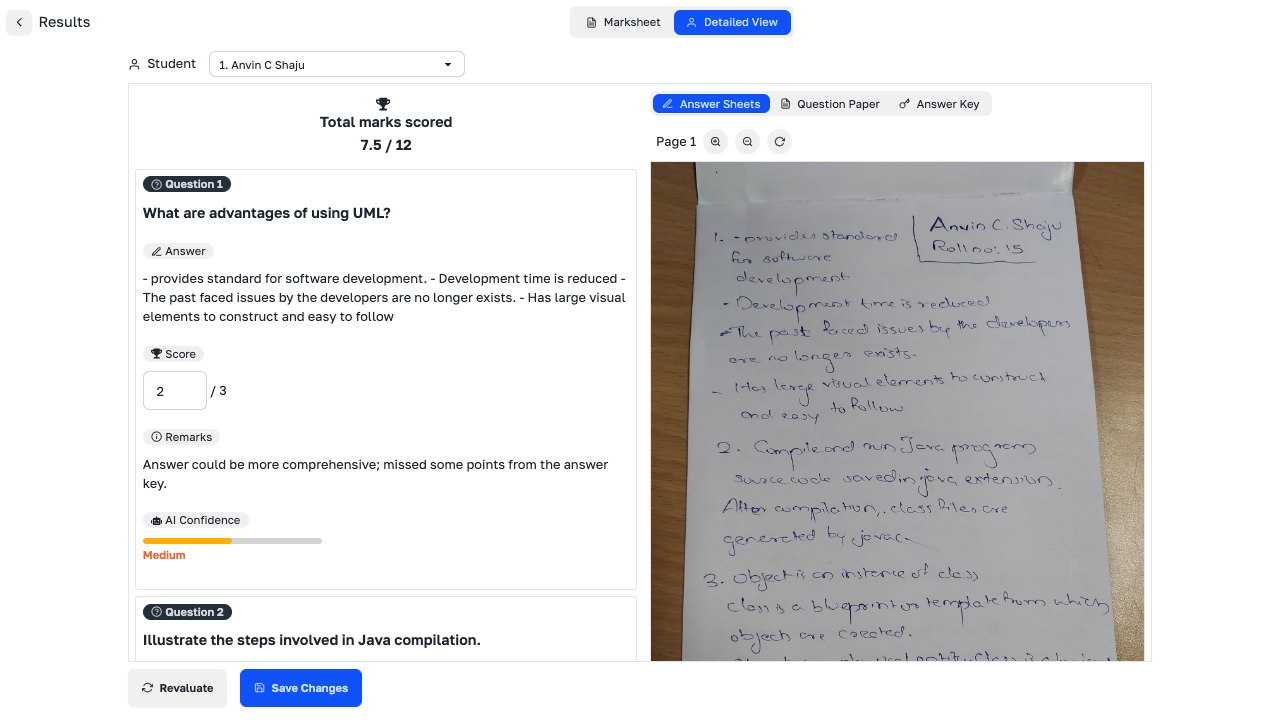 Results
Marksheet
Detailed View
Student
1. Anvin C Shaju
Total marks scored
7.5 / 12
Question 1
What are advantages of using UML?
Answer
- provides standard for software development. - Development time is reduced -
The past faced issues by the developers are no longer exists. - Has large visual
elements to construct and easy to follow
Score
2 / 3
Remarks
Answer could be more comprehensive; missed some points from the answer
key.
AI Confidence
Medium
Question 2
Illustrate the steps involved in Java compilation.
Revaluate
Save Changes
Answer Sheets
Question Paper
Answer Key
Page 1
Anvin C. Shaju
Roll no: 15
1. - provides standard
for software
development
- Development time is reduced
- The past faced issues by the developers
are no longer exists-
- Has large visual elements to construct
and easy to follow
2. Compile and run Java program
source code saved in java extension.
After compilation, .class files are
generated by javac.
3. Object is an instance of class
class is a blueprint or template from which
objects are created.